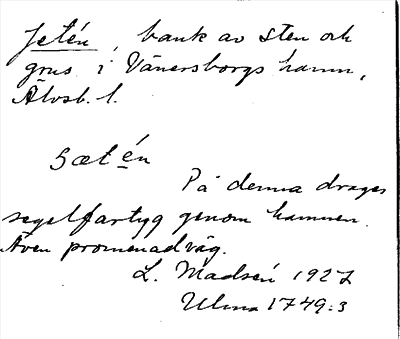 Jetén, bank av sten och
grus i Vänersborgs hamn,
Älvsb. l.
sæt én
På denna drages
segelfartyg genom hamnen.
Även promenadväg.
L. Madsén 1927
Ulma 1749:3